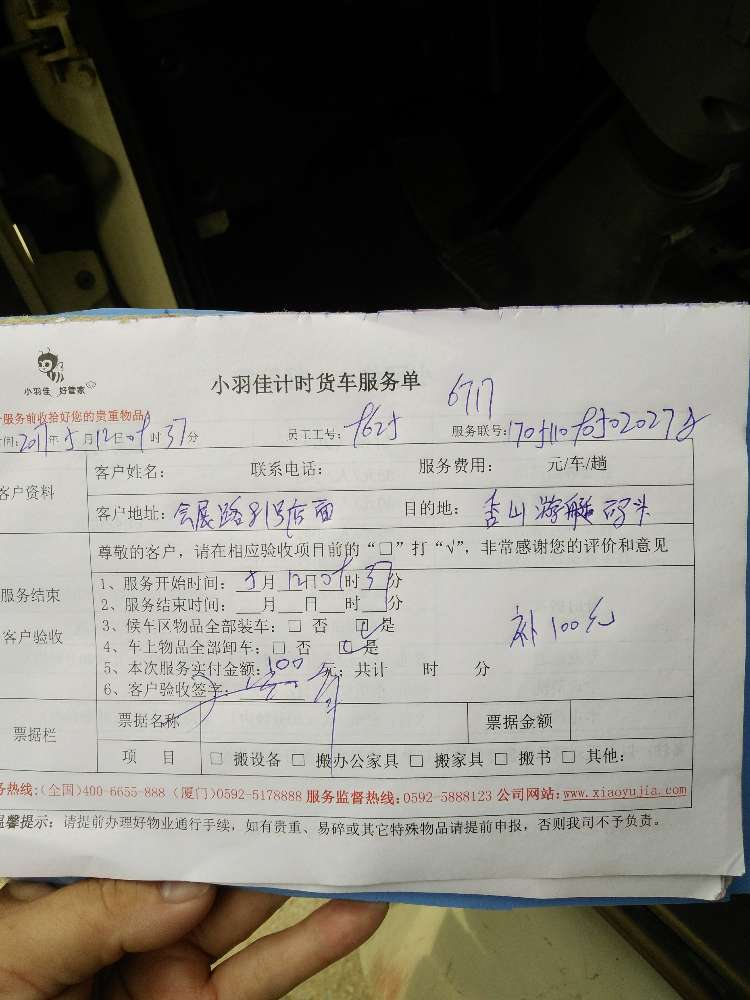 小羽佳 好管家
小羽佳计时货车服务单
6717
服务前收拾好您的贵重物品
间:2017年5月12日 时37分 员工工号: 服务联号:
客户资料
客户姓名: 联系电话: 服务费用: 元/车/趟
客户地址:会展路 号店面 目的地:香山游艇码头
尊敬的客户，请在相应验收项目前的“□”打“√”，非常感谢您的评价和意见
服务结束
客户验收
1、服务开始时间:5月12日 时37分
2、服务结束时间:__月__日__时__分
3、候车区物品全部装车:□ 否 □是
4、车上物品全部卸车:□ 否 □是
补100元
5、本次服务实付金额:100元；共计 时 分
6、客户验收签字:
票据栏
票据名称 票据金额
项 目 □ 搬设备 □ 搬办公家具 □ 搬家具 □ 搬书 □ 其他:
务热线:(全国)400-6655-888 (厦门)0592-5178888 服务监督热线:0592-5888123 公司网站:www.xiaoyujia.com
温馨提示：请提前办理好物业通行手续，如有贵重、易碎或其它特殊物品请提前申报，否则我司不予负责。